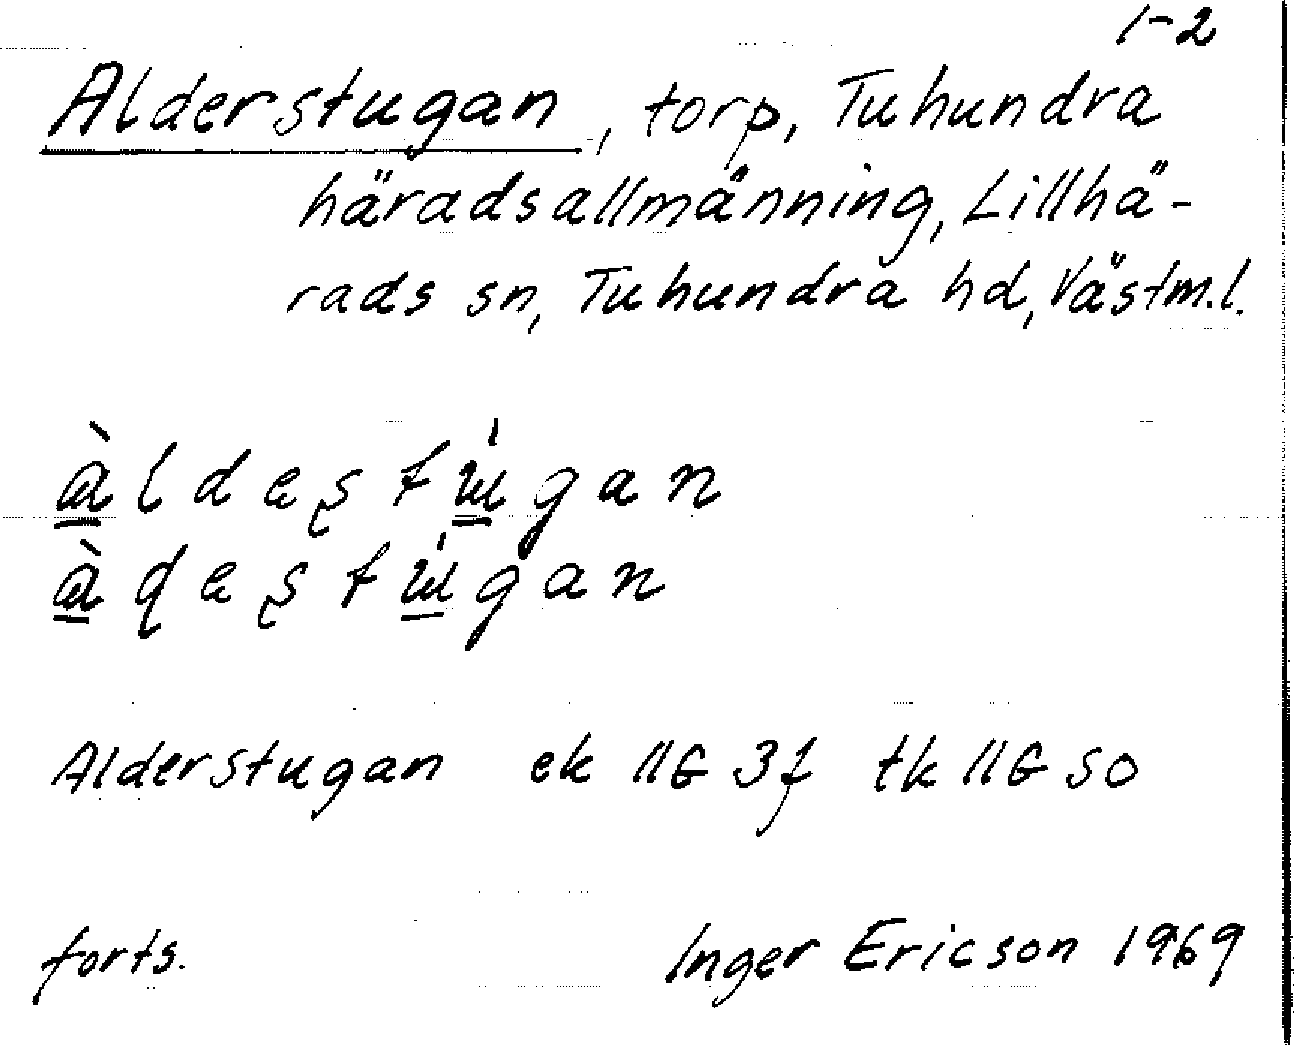 1-2
Alderstugan, torp, Tuhundra
häradsallmänning, Lillhä-
rads sn, Tuhundra hd, Västm.l.
Alderstugan ek 11G 3f tk 11G SO
forts. Inger Ericson 1969